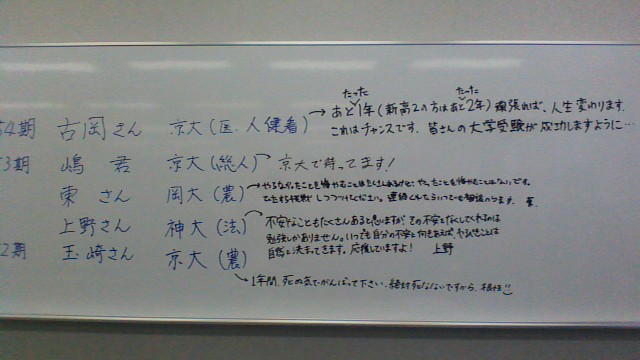 たった たった
あと1年(新高2の方はあと2年)頑張れば、人生変わります。
54期 古岡さん 京大(医・人健看)
これはチャンスです。皆さんの大学受験が成功しますように…
53期 嶋 君 京大(総人) 京大で待ってます!
東 さん 岡大(農) やらなかったことを悔やむことはたくさんあるけど、やったことを悔やむことはないです。
東
上野さん 神大(法) 不安なこともたくさんあると思いますが、その不安をなくしてくれるのは
勉強しかありません。いつでも自分の不安と向きあえば、やるべきことは
2期 玉崎さん 京大(農) 自然と決まってきます。応援していますよ! 上野
1年間、死ぬ気でがんばって下さい。絶対死なないですから。根性!!